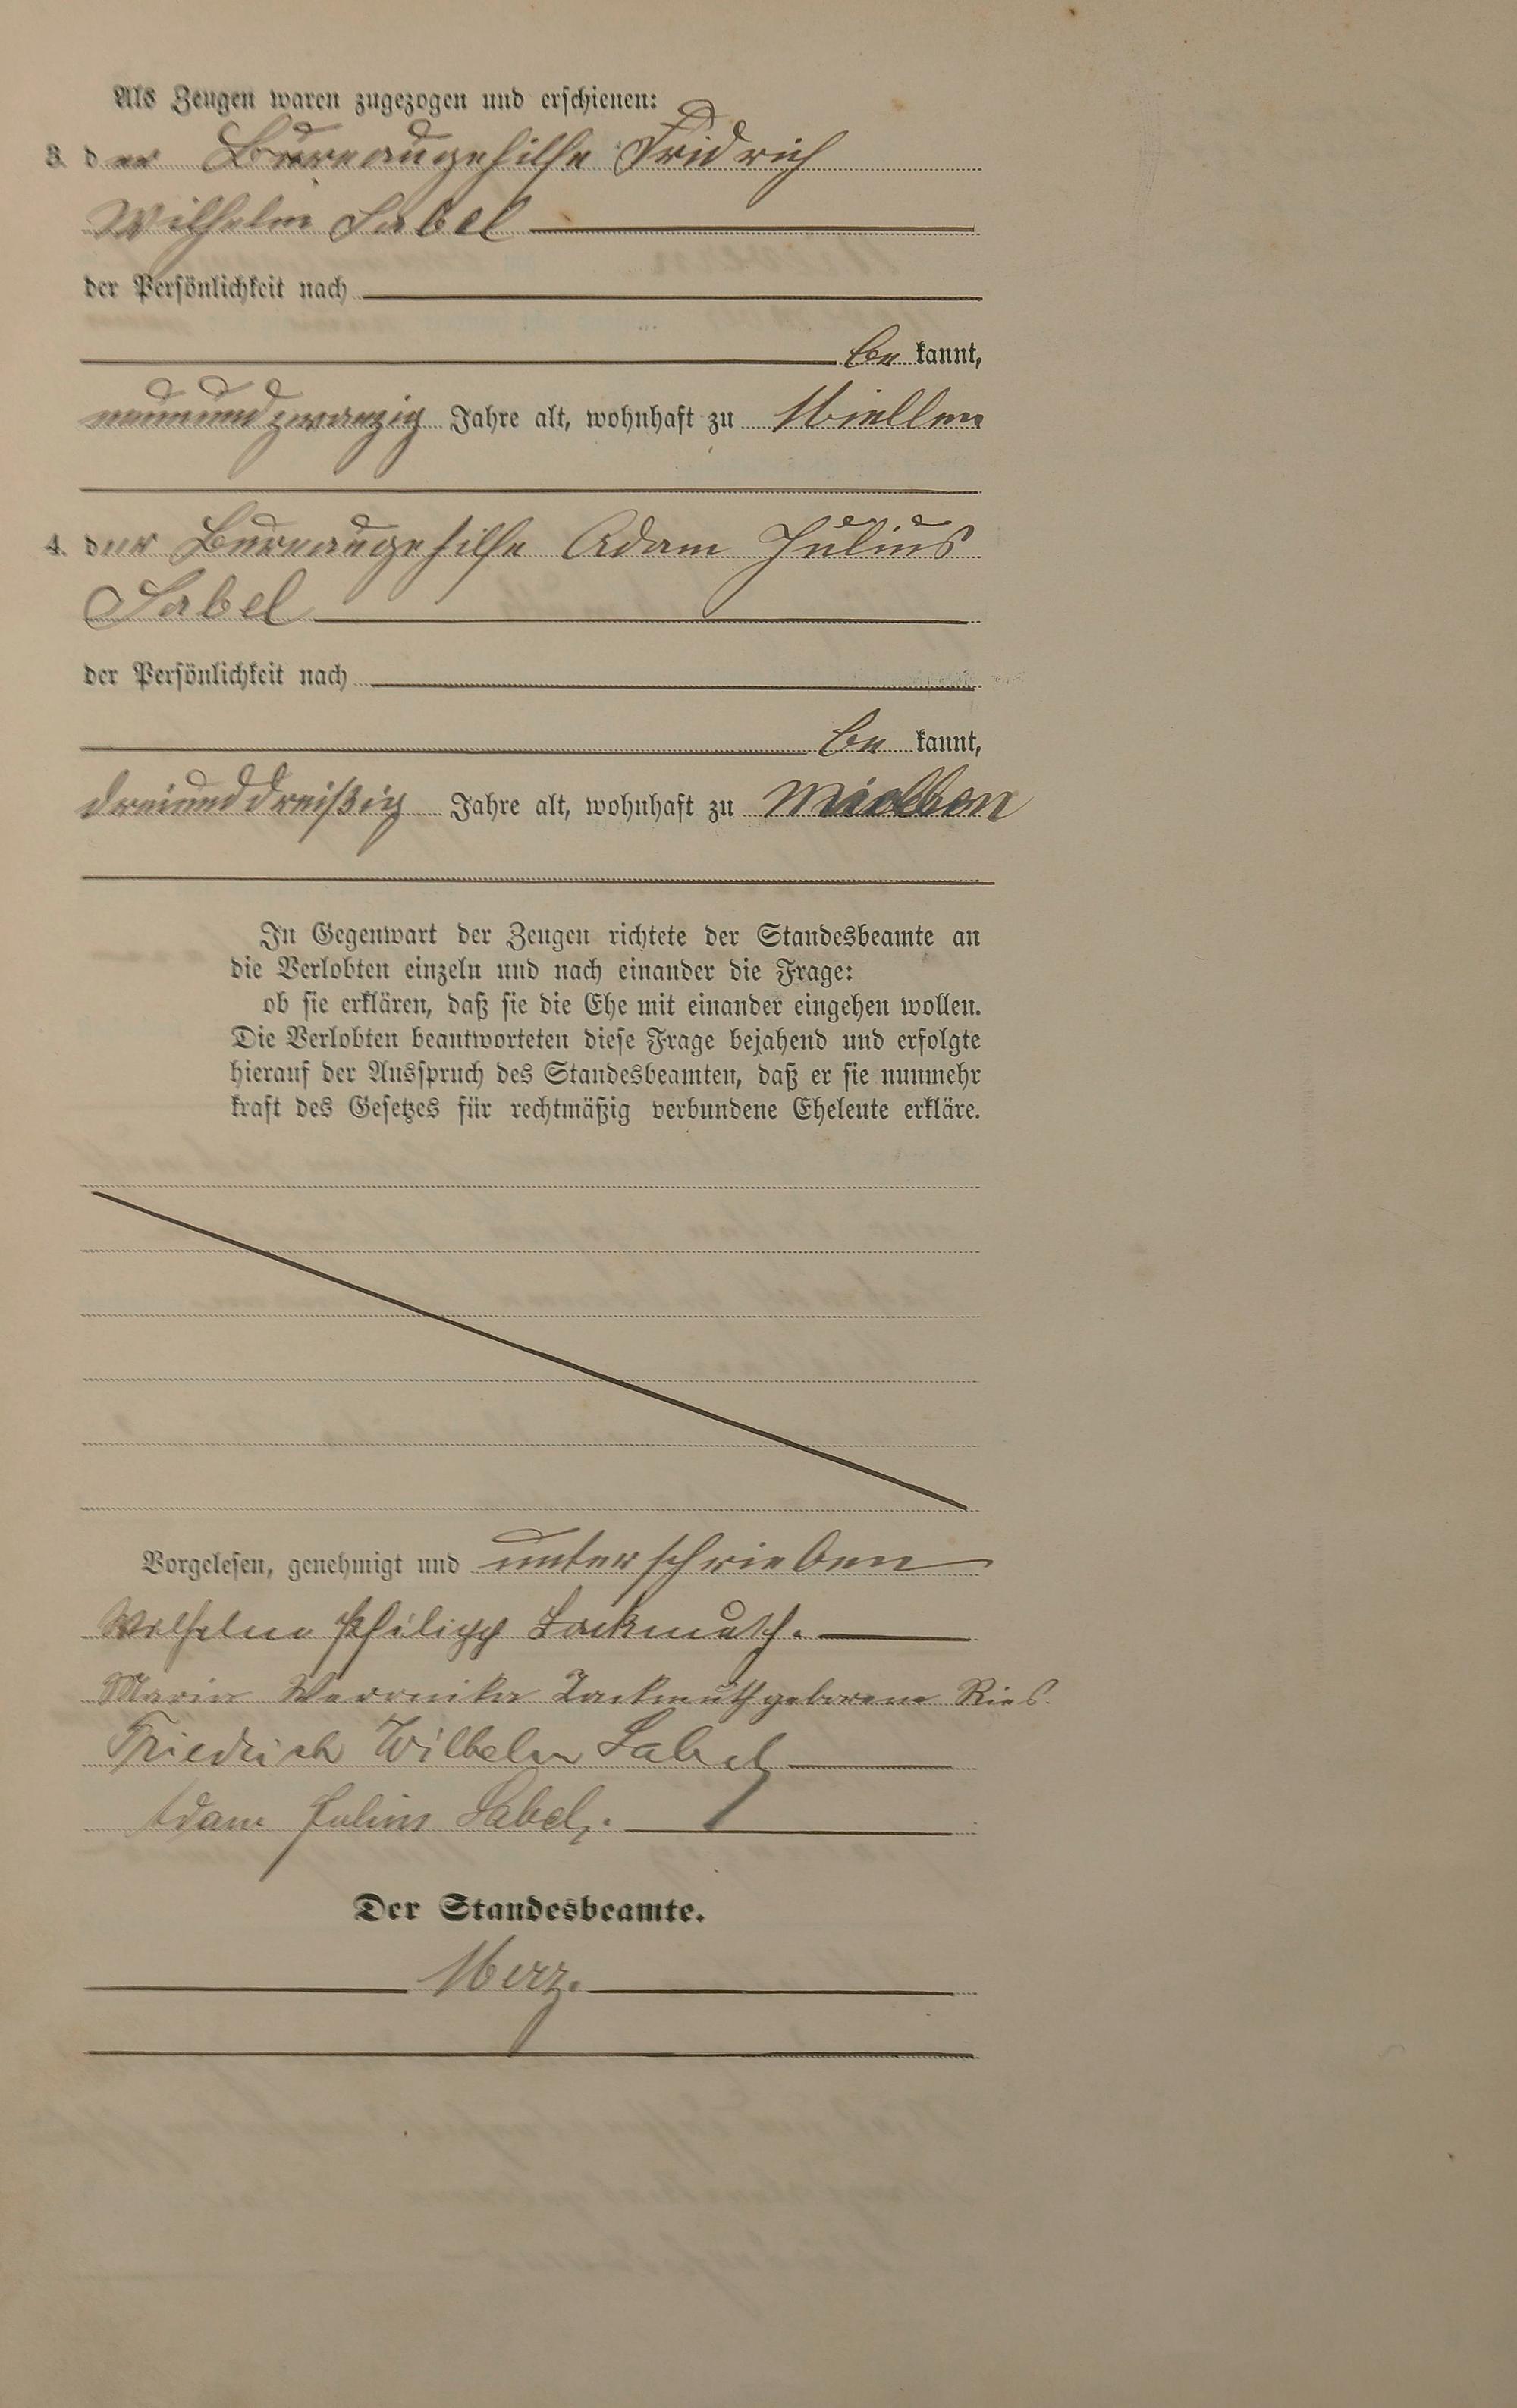 Als Zeugen waren zugezogen und erschienen:
3. der Bureaugehilfe Fridrich
Wilhelm Sabel
der Persönlichkeit nach
be kannt,
neunundzwanzig Jahre alt, wohnhaft zu Miellen
4. der Bureaugehilfe Adam Julius
Sabel
der Persönlichkeit nach
be kannt,
dreiunddreißig Jahre alt, wohnhaft zu Miellen
In Gegenwart der Zeugen richtete der Standesbeamte an
die Verlobten einzeln und nach einander die Frage:
ob sie erklären, daß sie die Ehe mit einander eingehen wollen.
Die Verlobten beantworteten diese Frage bejahend und erfolgte
hierauf der Ausspruch des Standesbeamten, daß er sie nunmehr
kraft des Gesetzes für rechtmäßig verbundene Eheleute erkläre.
Vorgelesen, genehmigt und unterschrieben
Wilhelm Philipp Lackmuth.
Maria Weronika Lackmuth geborene Ries.
Friedrich Wilhelm Sabel
Adam Julius Sabel.
Der Standesbeamte.
Merz.